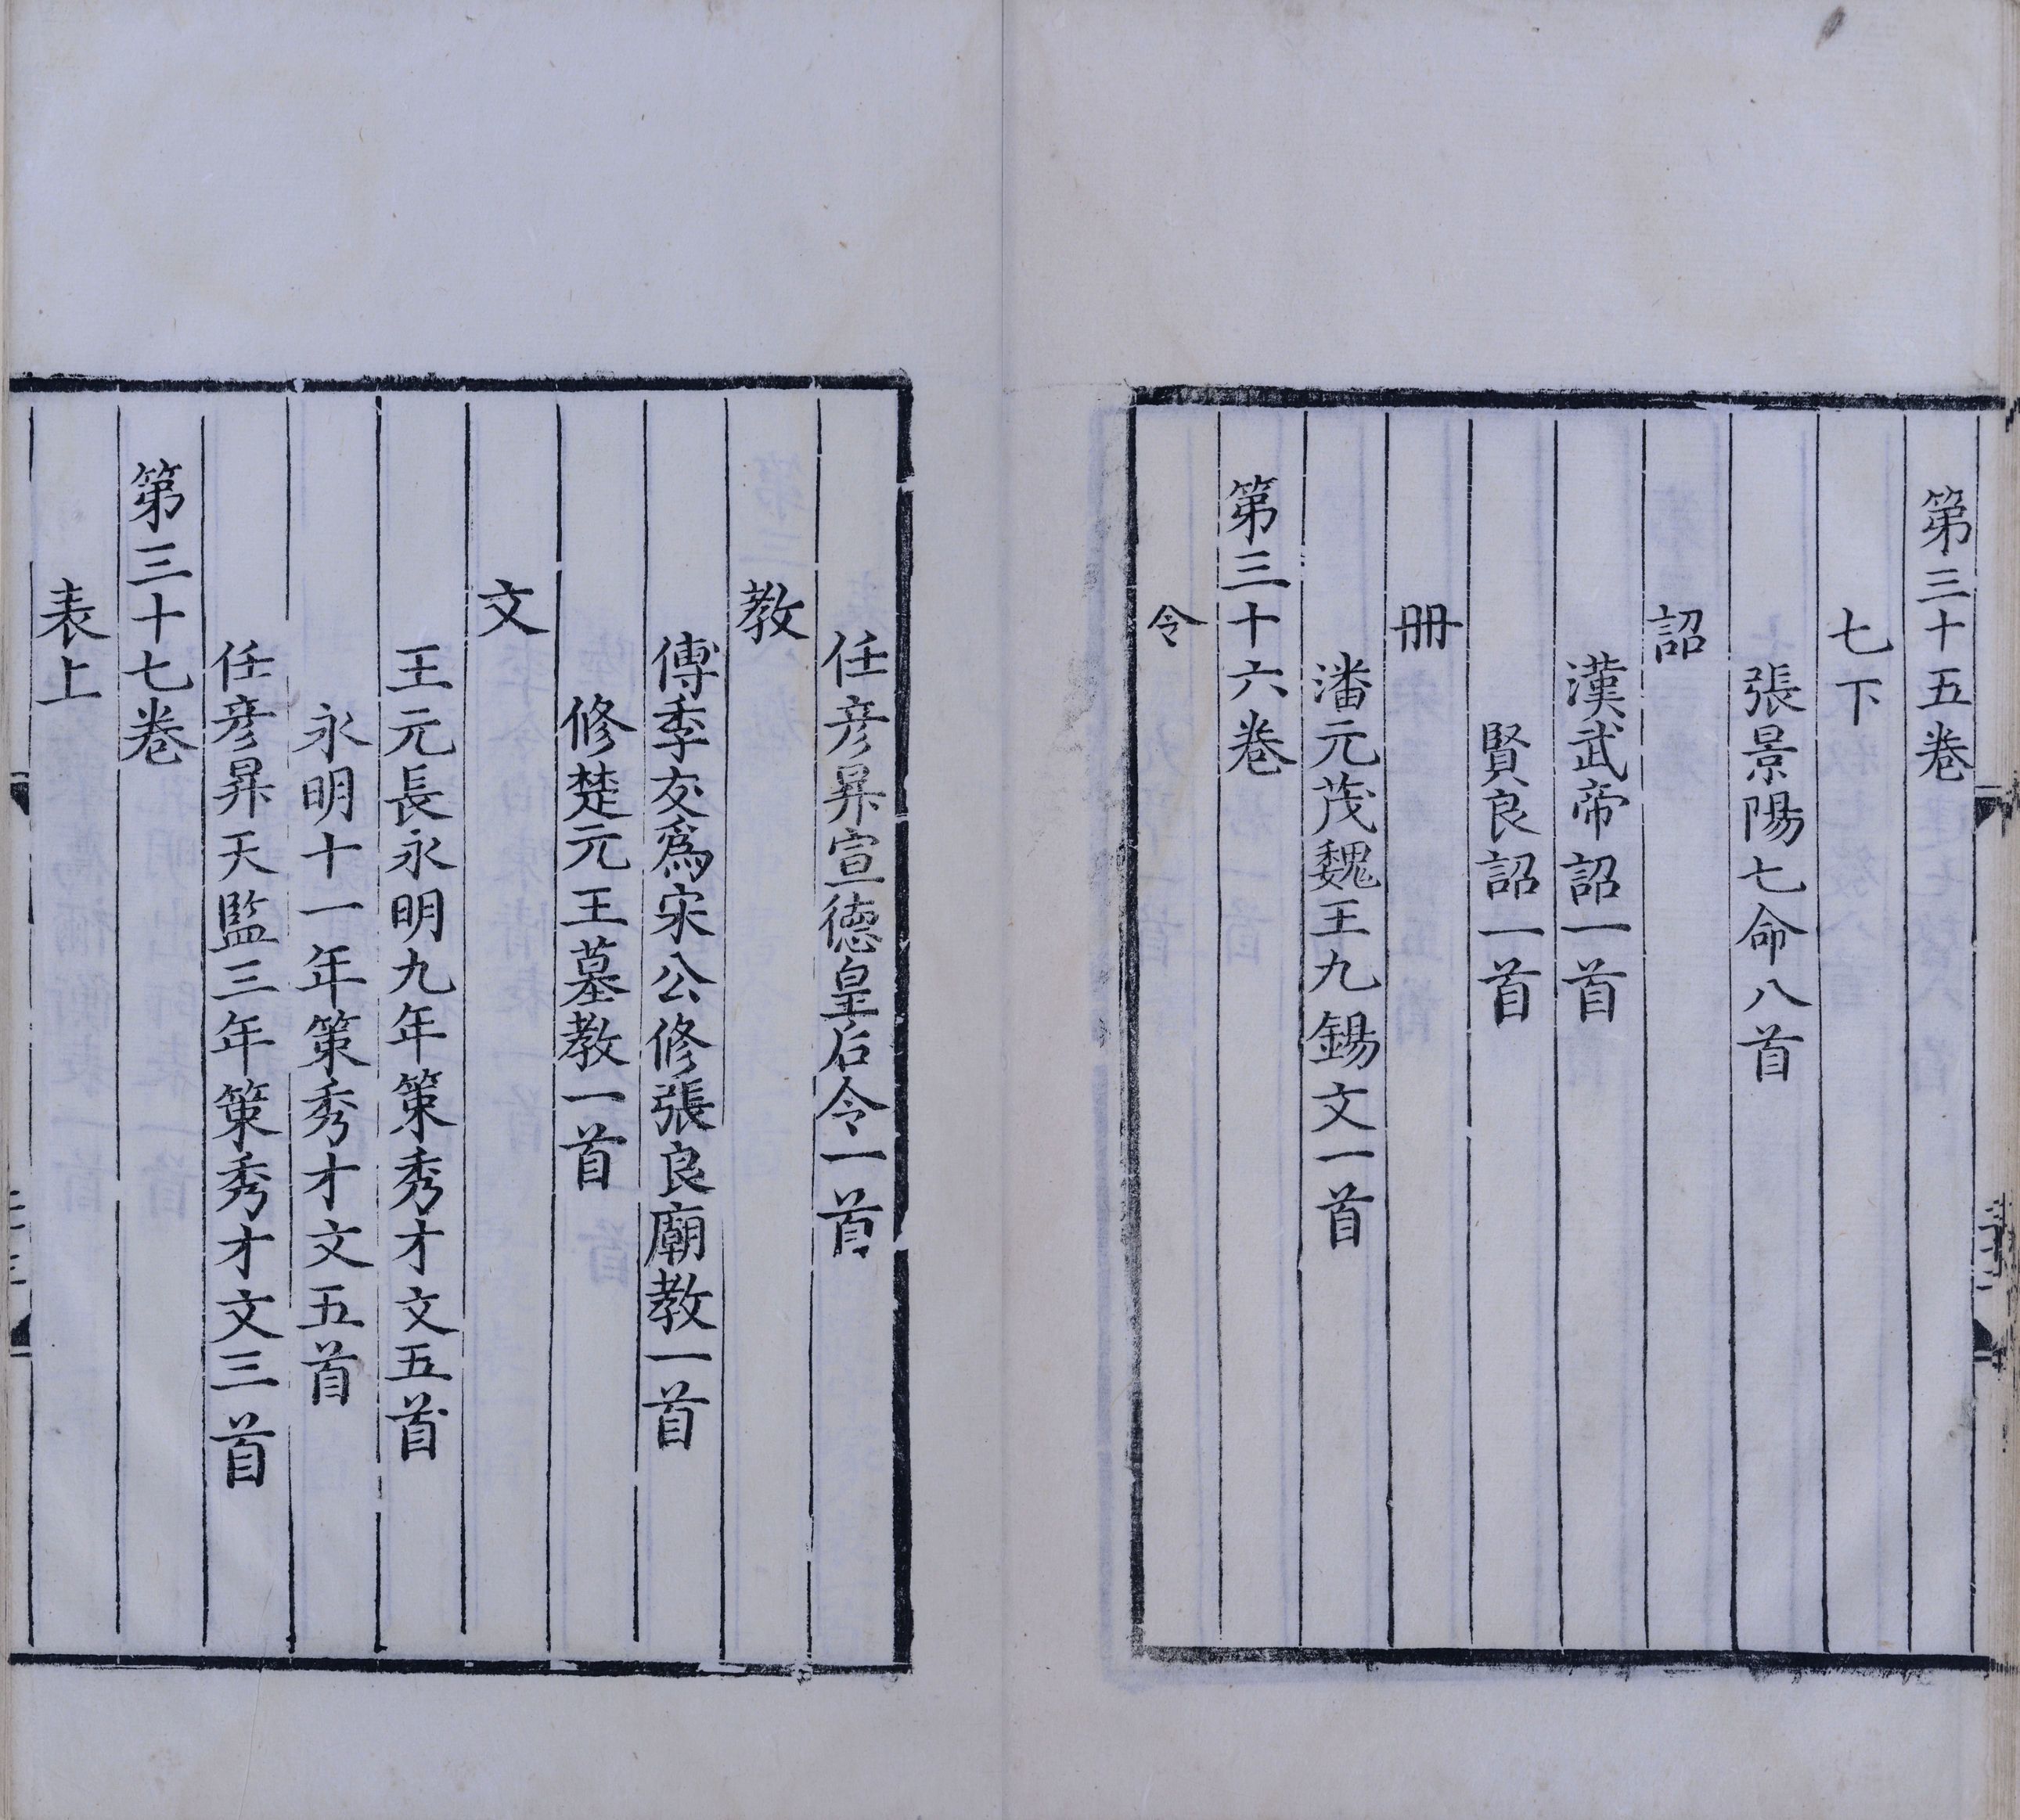 第三十五卷
七下
張景陽七命八首
詔
漢武帝詔一首
賢良詔一首
册
潘元茂魏王九錫文一首
第三十六卷
令
任彦昇宣德皇后令一首
教
傅季友爲宋公修張良廟教一首
修楚元王墓教一首
文
王元長永明九年策秀才文五首
永明十一年策秀才文五首
任彦昇天監三年策秀才文三首
第三十七卷
表上